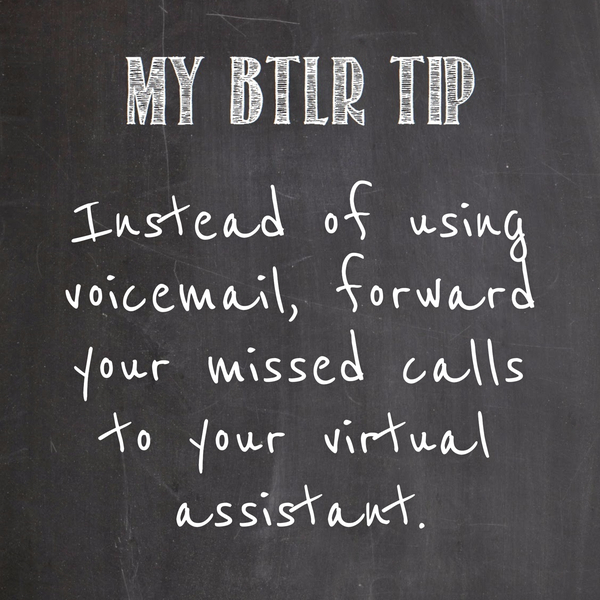 MY BTLR TIP
Instead of using
voicemail, forward
your missed calls
to your virtual
assistant.